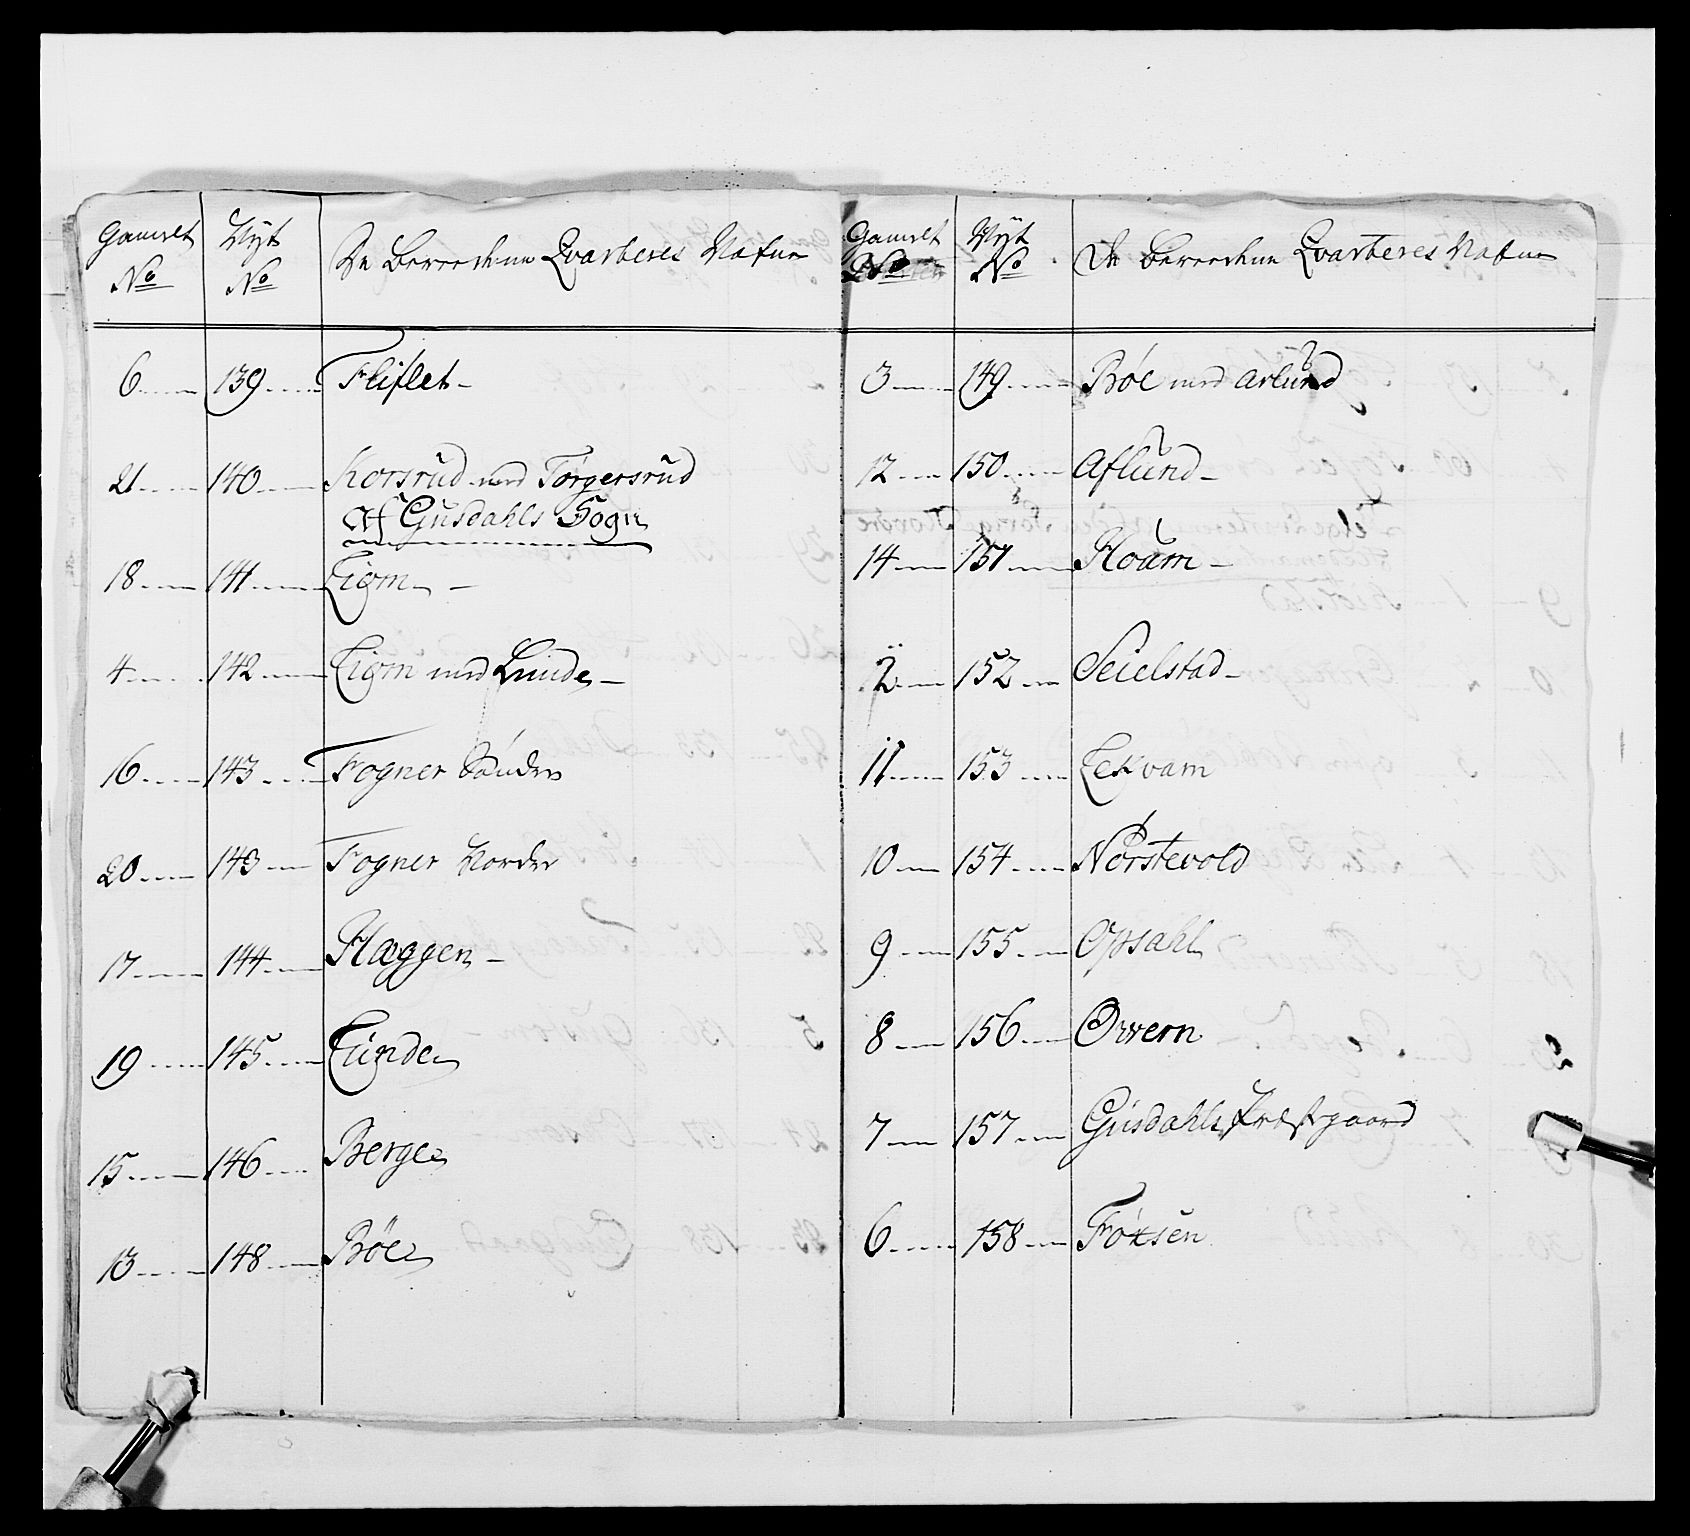 Gamelt Nyt De Beredene Qvarterers Nafne
No No
6 139 Fliflet
21 140 Korsrud med Torgersrud
Af Gusdahls Sogn
18 141 Liøm
4 142 Liøm med Lunde
16 143 Fogner Søndre
20 143 Fogner Nordre
17 144 Flaggen
19 145 Lunde
15 146 Berge
13 148 Bøe
Gamelt Nyt De Beredene Qvarterers Nafne
No No
3 149 Bøe med Avlund
12 150 Aflund
14 151 Floum
2 152 Seielstad
11 153 Lekvam
10 154 Nørstevold
9 155 Opsahl
8 156 Ovren
7 157 Gusdahls Præstgaard
6 158 Foxsen